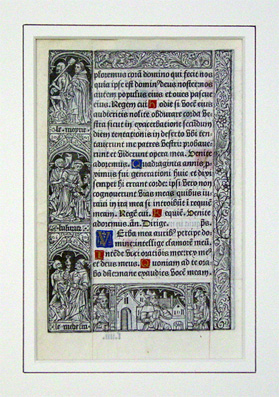 ploremus corā domino qui fecit nos
quia ipse est dominꝰ deus noster: nos
autem populus eius et oues pascue
eius. Regem cui. Hodie si vocē eius
audieritis nolite obdurare corda ve-
stra sicut in exacerbatione secūdum
diem temtationis in deserto vbi ten-
tauerunt me patres vestri: probaue-
runt et viderunt opera mea. Venite
adoremus. Quadraginta annis p-
ximus fui generationi huic et dixi
semper hi errant corde: ipsi vero non
cognouerunt vias meas quibus iu-
raui in ira mea si introibūt ī requiē
meam. Regē cui. Requiē. Venite
adoremus. añ. Dirige. ps.
Verba mea auribꝰ percipe do-
mine: intellige clamorē meū.
Intēde voci orationis mee: rex meꝰ
et deus meus. Quoniam ad te ora-
bo dñe: mane exaudies vocē meam.
le moyne
le medecin